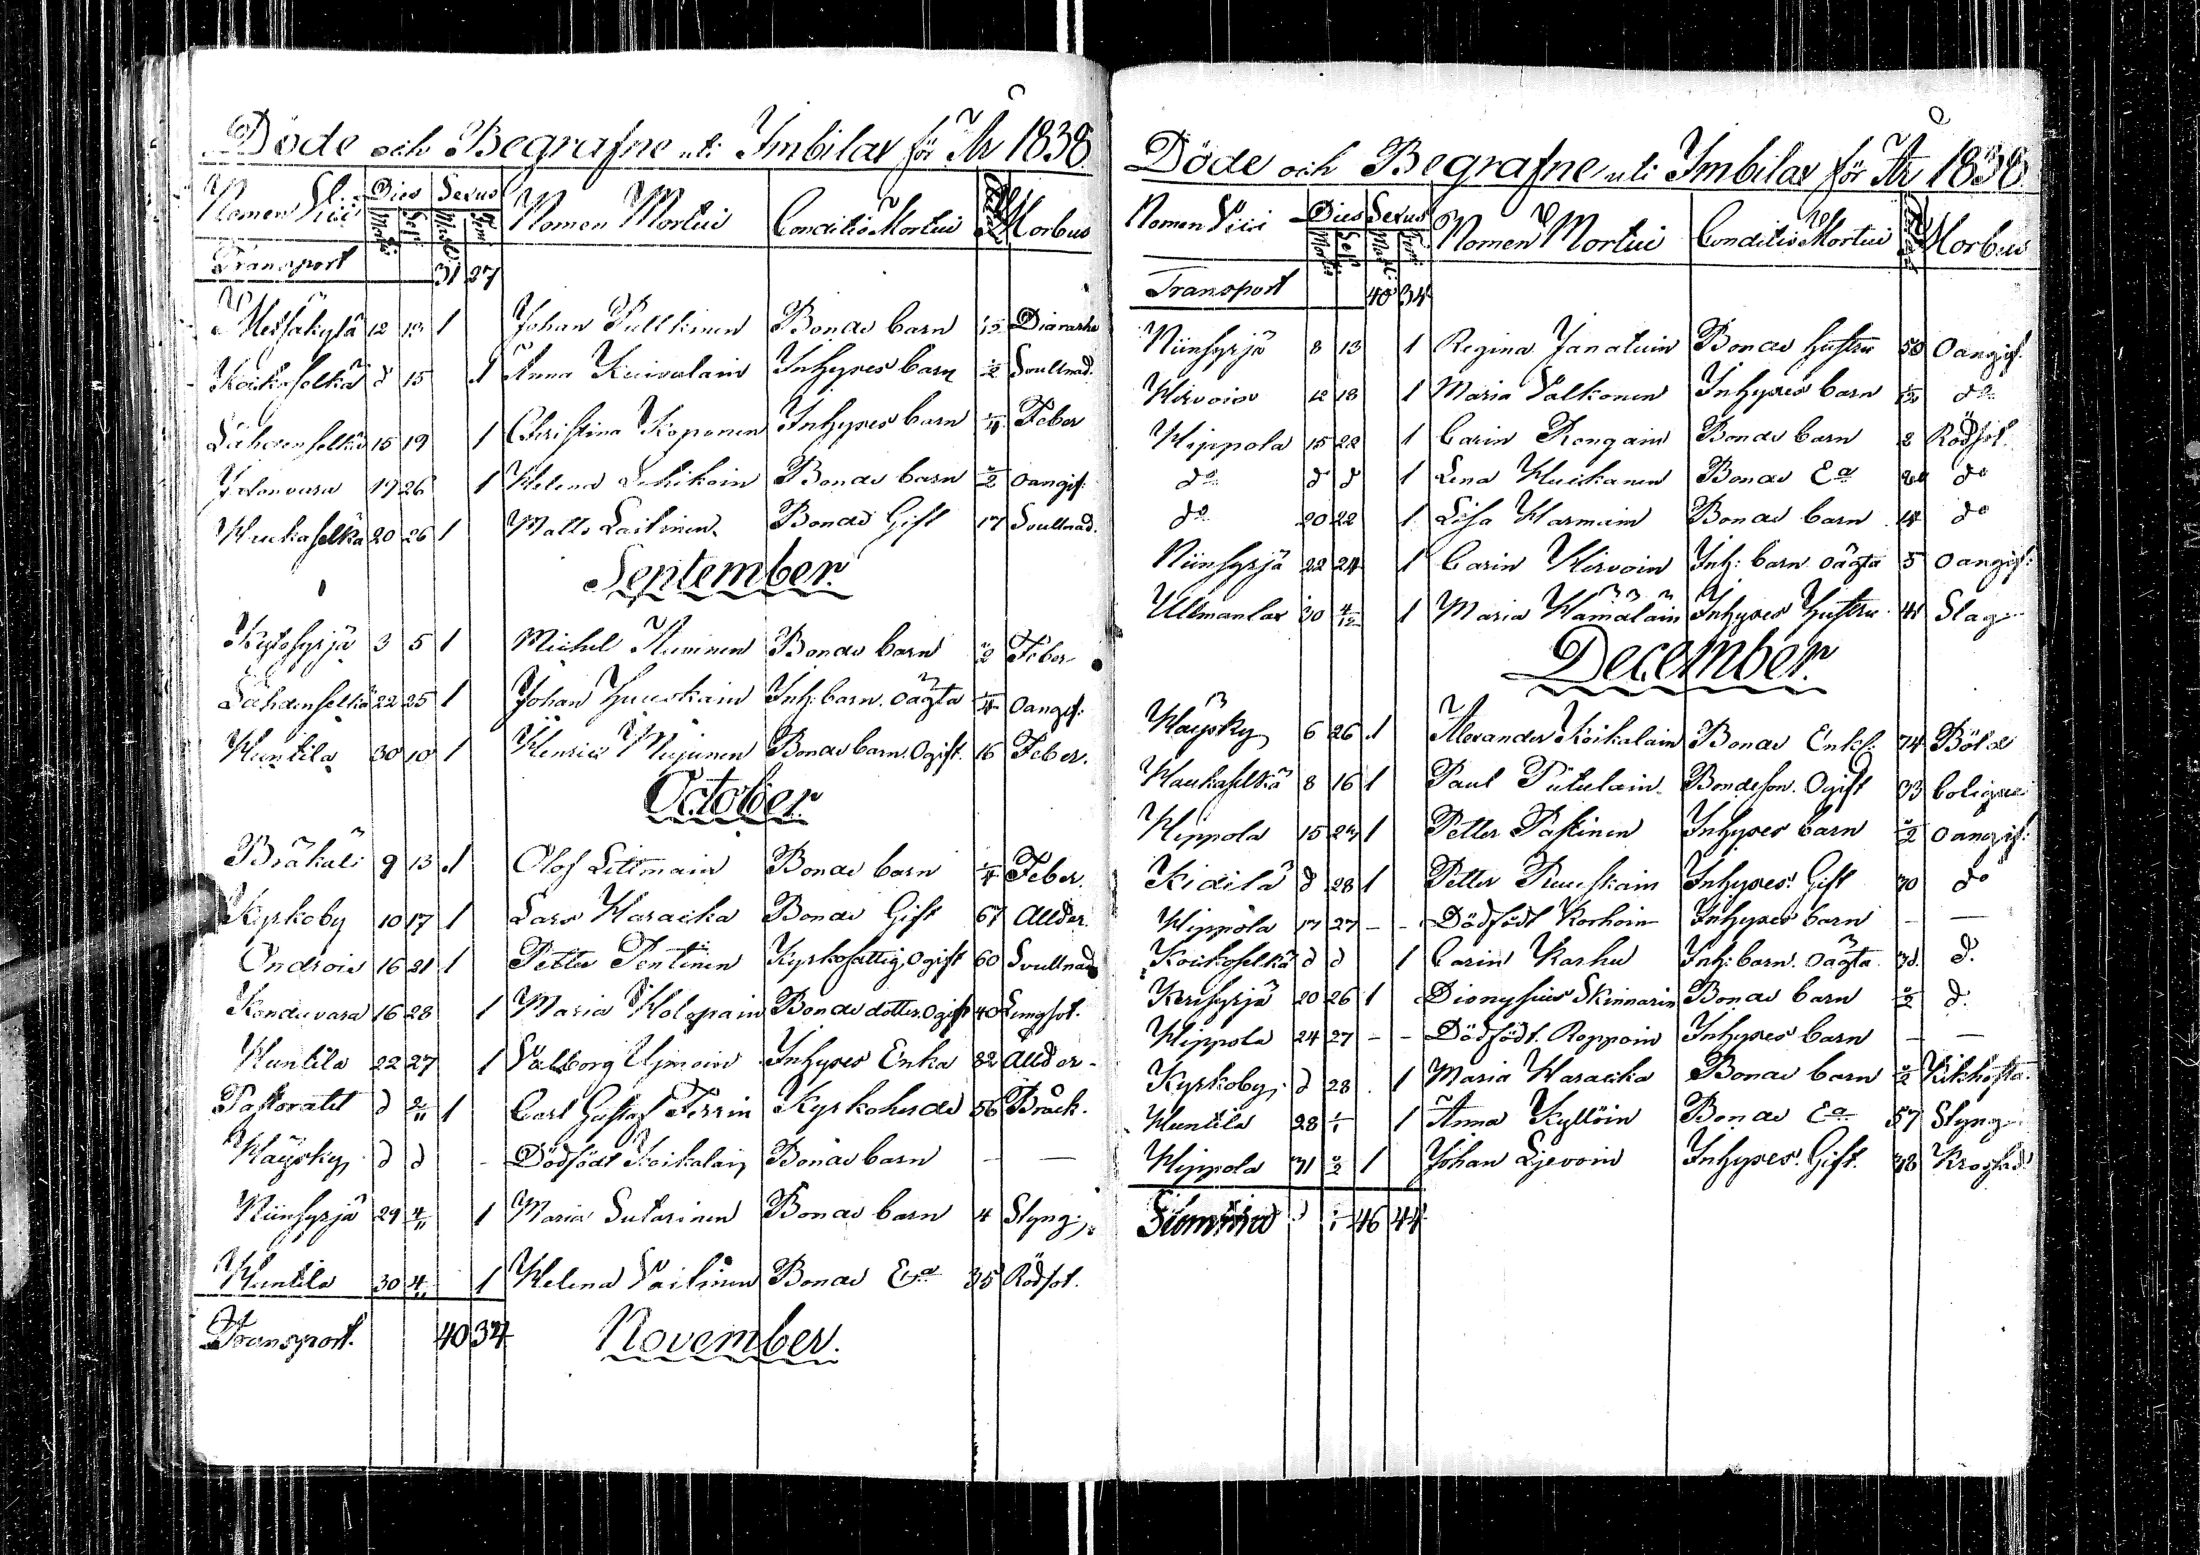 Döde och Begrafne uti Imbilax för År 1838
Nomen Vici Dies Sexus Nomen Mortui Conditio Mortui Morbus
Transport 31 27
Messäkylä 12 13 1 Johan Pullkinen Bondes barn Diarrhe
Koikaselkä d 15 1 Anna Kuivalain Inhyses barn 1/2 Svullnad.
Lahdenselkä 15 19 1 Christina Koponen Inhyses barn 1/4 Feber
Jalonvara 17 26 1 Helena Lehikoin Bondes barn 1/2 Oangif:
Haukaselkä 20 26 1 Matts Laitinen Bonde Gift 17 Svullnad.
September.
Kylosyrjä 3 5 1 Michel Muinen Bondes barn 1/2 Feber
Lahdenselkä 22 25 1 Johan Huuskain Inh: barn. oägta 1/4 Oangif:
Huntila 30 10 1 Henric Mujunen Bondes barn. Ogift. 16 Feber.
October.
Bräkäli 9 13 1 Olof Littmain Bondes barn 1/4 Feber.
Kyrkoby 10 17 1 Lars Haracka Bonde Gift 67 Ållder.
Ondrois 16 21 1 Petter Pentinen Kyrkofattig, Ogift 60 Svullnad
Konduvara 16 28 1 Maria Holopain Bondes dotter. Ogift 40 Lungsot.
Huntila 22 27 1 Valborg Ujmoin Inhyses Enka 82 Ållder.
Pastoratet d 2/11 1 Carl Gustaf Ferrin Kyrkoherde 56 Bråck.
Häysky d d - Dödfödt Koikalain Bondes barn - -
Niinsyrjä 29 4/11 1 Maria Sutarinen Bondes barn 4 Styng.
Huntila 30 4/11 1 Helena Vaitinen Bondes Ea 35 Rödsot.
Transport. 40 34 November.
Döde och Begrafne uti Imbilax för År 1838
Nomen Vici Dies Sexus Nomen Mortui Conditio Mortui Morbus
Transport 40 34
Niinsyrjä 8 13 1 Regina Janatuin Bondes hustru 58 Oangif.
Hirvois 12 18 1 Maria Valkonen Inhyses barn do
Hippola 15 22 1 Carin Rongain Bondes barn 2 Rödsot.
do d d 1 Lena Kuikanen Bondes Ea do
do 20 22 1 Lisa Harmain Bondes barn 14 do
Niinsyrjä 22 24 1 Carin Hirvoin Inh: barn oägta 5 Oangif:
Ullmanlax 30 4/12 1 Maria Hämäläin Inhyses Hustru 41 Slag
December.
Häysky 6 26 1 Alexander Koikalain Bonde Enkl: 74 Böld
Haukaselkä 8 16 1 Paul Piitulain Bondeson. Ogift 33 Colique
Hippola 15 27 1 Petter Paskinen Inhyses barn 1/2 Oangif:
Kidilä d 28 1 Petter Ruuskain Inhyses. Gift 70 do
Hippola 17 27 - - Dödfödt Korhoin Inhyses barn - -
Koikoselkä d d 1 Carin Karhu Inh: barn. oägta. 7d. d.
Kerisyrjä 20 26 1 Dionysius Skinnarin Bondes barn 1/2 d.
Hippola 24 27 - - Dödfödt. Roppoin Inhyses barn - -
Kyrkoby d 28 1 Maria Haracka Bondes barn 1/2 Kikhosta.
Huntila 28 1/1 1 Anna Kyllöin Bondes Ea 57 Styng
Hippola 31 1 Johan Ljevoin Inhyses. Gift. 38
Summa 46 44